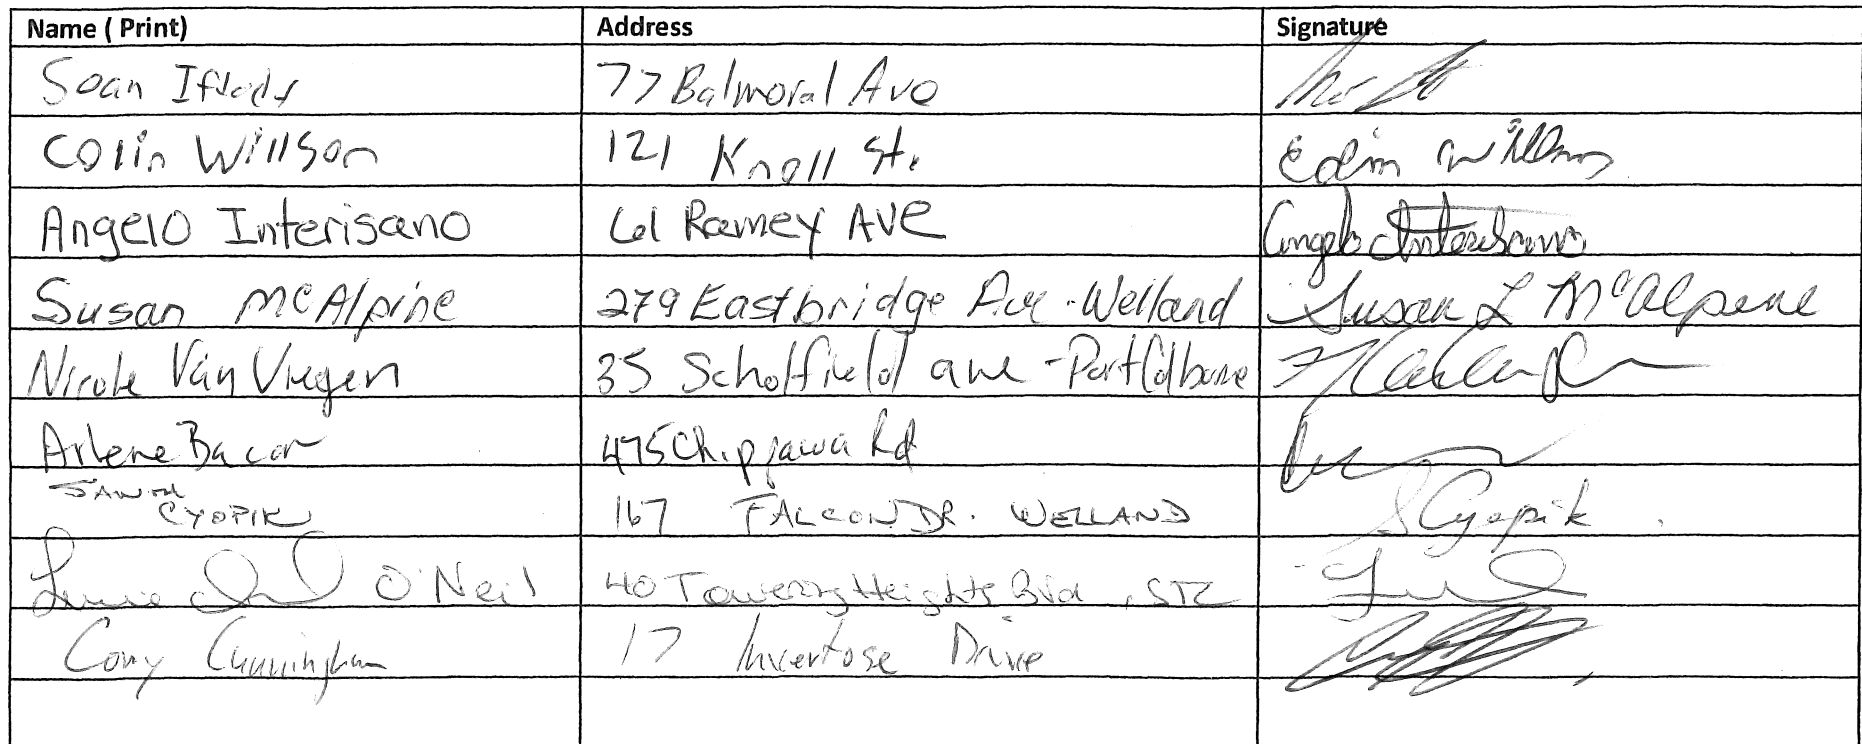 Name ( Print) Address Signature
Sean 77 Balmoral Ave
Colin Willson 121 Knoll St. Colin Willson
Angelo Interisano 61 Ramey AVE Angelo Interisano
Susan McAlpine 279 Eastbridge Ave - Welland Susan L McAlpine
Nicole Van Vliegen 35 Scholfield ave - Port Colborne
Arlene Bacon 475 Chippawa Rd
167 FALCON DR. WELLAND SCyopik
CYOPIK
O'Neil 40 Towering Heights Blvd, STC
Cory Cunningham 17 Invertose Drive